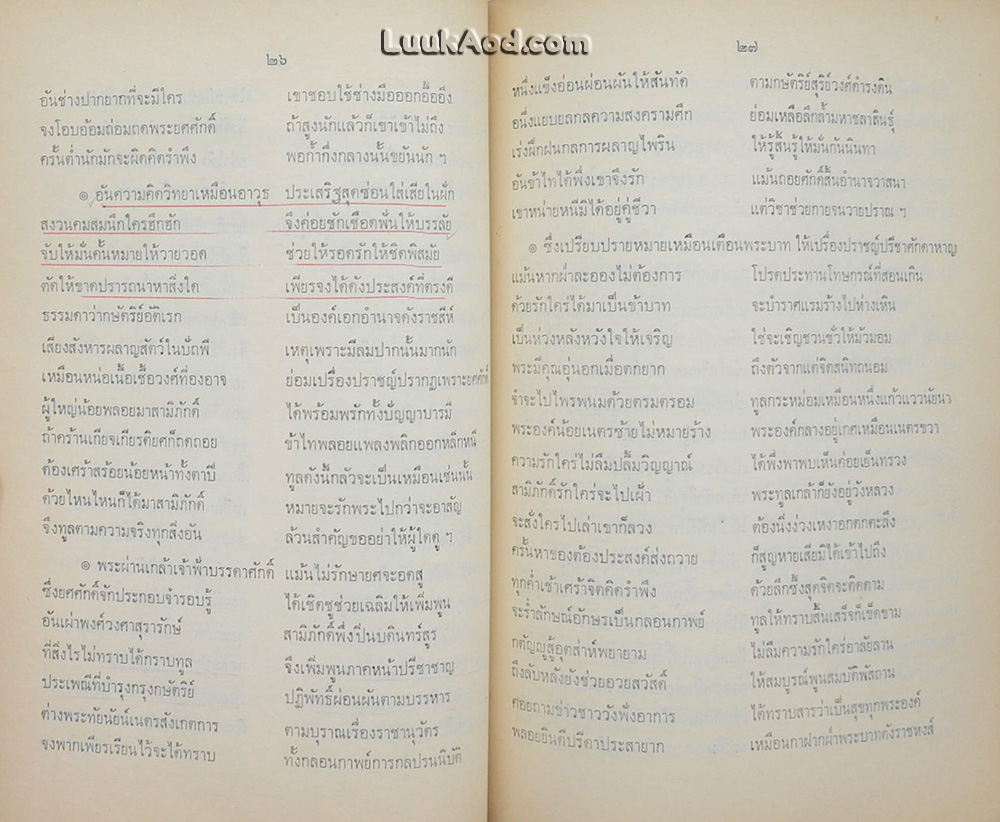 LuukAod.com
๒๖
อันช่างปากยากที่จะมีใคร เขาชอบใช้ช่างมือออกอื้ออึง
จงโอบอ้อมถ่อมถดพระยศศักดิ์ ถ้าสูงนักแล้วก็เขาเข้าไม่ถึง
ครั้นต่ำนักมักจะผิดคิดรำพึง พอก้ำกึ่งกลางนั้นขยันนัก ฯ
๏ อันความคิดวิทยาเหมือนอาวุธ ประเสริฐสุดซ่อนใส่เสียในฝัก
สงวนคมสมนึกใครฮึกฮัก จึงค่อยชักเชือดฟันให้บรรลัย
จับให้มั่นคั้นหมายให้วายวอด ช่วยให้รอดรักให้ชิดพิสมัย
ตัดให้ขาดปรารถนาหาสิ่งใด เพียรจงได้ดังประสงค์ที่ตรงดี
ธรรมดาว่ากษัตริย์อติเรก เป็นองค์เอกอำนาจดังราชสีห์
เสียงสังหารผลาญสัตว์ในปถพี เหตุเพราะมีลมปากนั้นมากนัก
เหมือนหน่อเนื้อเชื้อวงศ์ที่องอาจ ย่อมเปรื่องปราชญ์ปรากฏเพราะยศศักดิ์
ผู้ใหญ่น้อยพลอยมาสามิภักดิ์ ได้พร้อมพรักทั้งปัญญาบารมี
ถ้าคร้านเกียจเกียรติยศก็ถดถอย ข้าไทพลอยแพลงพลิกออกหลีกหนี
ต้องเศร้าสร้อยน้อยหน้าทั้งตาปี ทูลดังนี้กลัวจะเป็นเหมือนเช่นนั้น
ด้วยไหนไหนก็ได้มาสามิภักดิ์ หมายจะรักพระไปกว่าจะอาสัญ
จึงทูลตามความจริงทุกสิ่งอัน ล้วนสำคัญขออย่าให้ผู้ใดดู ฯ
๏ พระผ่านเกล้าเจ้าฟ้าบรรดาศักดิ์ แม้นไม่รักษายศจะอดสู
ซึ่งยศศักดิ์จักประกอบจำรอบรู้ ได้เชิดชูช่วยเฉลิมให้เพิ่มพูน
อันเผ่าพงศ์วงศาสุรารักษ์ สามิภักดิ์พึ่งปิ่นบดินทร์สูร
ที่สิ่งไรไม่ทราบได้กราบทูล จึงเพิ่มพูนภาคหน้าปรีชาชาญ
ประเพณีที่บำรุงกรุงกษัตริย์ ปฏิพัทธ์ผ่อนผันตามบรรหาร
ต่างพระทัยนัยน์เนตรสังเกตการ ตามบุราณเรื่องราชานุวัตร
จงพากเพียรเรียนไว้จะได้ทราบ ทั้งกลอนกาพย์การกลปรนนิบัติ
๒๗
หนึ่งแข็งอ่อนผ่อนผันให้สันทัด ตามกษัตริย์สุริย์วงศ์ดำรงดิน
อนึ่งแยบยลกลความสงครามศึก ย่อมเหลือลึกล้ำมหาชลาสินธุ์
เร่งฝึกฝนกลการผลาญไพริน ให้รู้สิ้นรู้ให้มั่นกันนินทา
อันข้าไทได้พึ่งเขาจึงรัก แม้นถอยศักดิ์สิ้นอำนาจวาสนา
เขาหน่ายหนีมิได้อยู่คู่ชีวา แต่วิชาช่วยกายจนวายปราณ ฯ
๏ ซึ่งเปรียบปรายหมายเหมือนเตือนพระบาท ให้เปรื่องปราชญ์ปรีชาศักดาหาญ
แม้นหากฝ่าละอองไม่ต้องการ โปรดประทานโทษกรณ์ที่สอนเกิน
ด้วยรักใคร่ได้มาเป็นข้าบาท จะบำราศแรมร้างไปห่างเหิน
เป็นห่วงหลังหวังใจให้เจริญ ใช่จะเชิญชวนชั่วให้มัวมอม
พระมีคุณอุ่นอกเมื่อตกยาก ถึงตัวจากแต่จิตสนิทถนอม
จำจะไปไพรพนมด้วยตรมตรอม ทูลกระหม่อมเหมือนหนึ่งแก้วแววนัยนา
พระองค์น้อยเนตรซ้ายไม่หมายร้าง พระองค์กลางอยู่เกศเหมือนเนตรขวา
ความรักใคร่ไม่ลืมปลื้มวิญญาณ์ ได้พึ่งพาพบเห็นค่อยเย็นทรวง
สามิภักดิ์รักใคร่จะไปเฝ้า พระทูลเกล้าก็ยังอยู่วังหลวง
จะสั่งใครไปเล่าเขาก็ลวง ต้องนิ่งง่วงเหงาอกตกตะลึง
ครั้นหาของต้องประสงค์ส่งถวาย ก็สูญหายเสียมิได้เข้าไปถึง
ทุกค่ำเช้าเศร้าจิตคิดรำพึง ด้วยลึกซึ้งสุดจิตจะติดตาม
จะร่ำลักษณ์อักษรเป็นกลอนกาพย์ ทูลให้ทราบสิ้นเสร็จก็เข็ดขาม
กตัญญูสู้อุตส่าห์พยายาม ไม่ลืมความรักใคร่อาลัยลาน
ถึงลับหลังยังช่วยอวยสวัสดิ์ ให้สมบูรณ์พูนสมบัติพัสถาน
คอยถามข่าวชาววังฟังอาการ ได้ทราบสารว่าเป็นสุขทุกพระองค์
พลอยยินดีปรีดาประสายาก เหมือนกาฝากฝ่าพระบาทดังราชหงส์